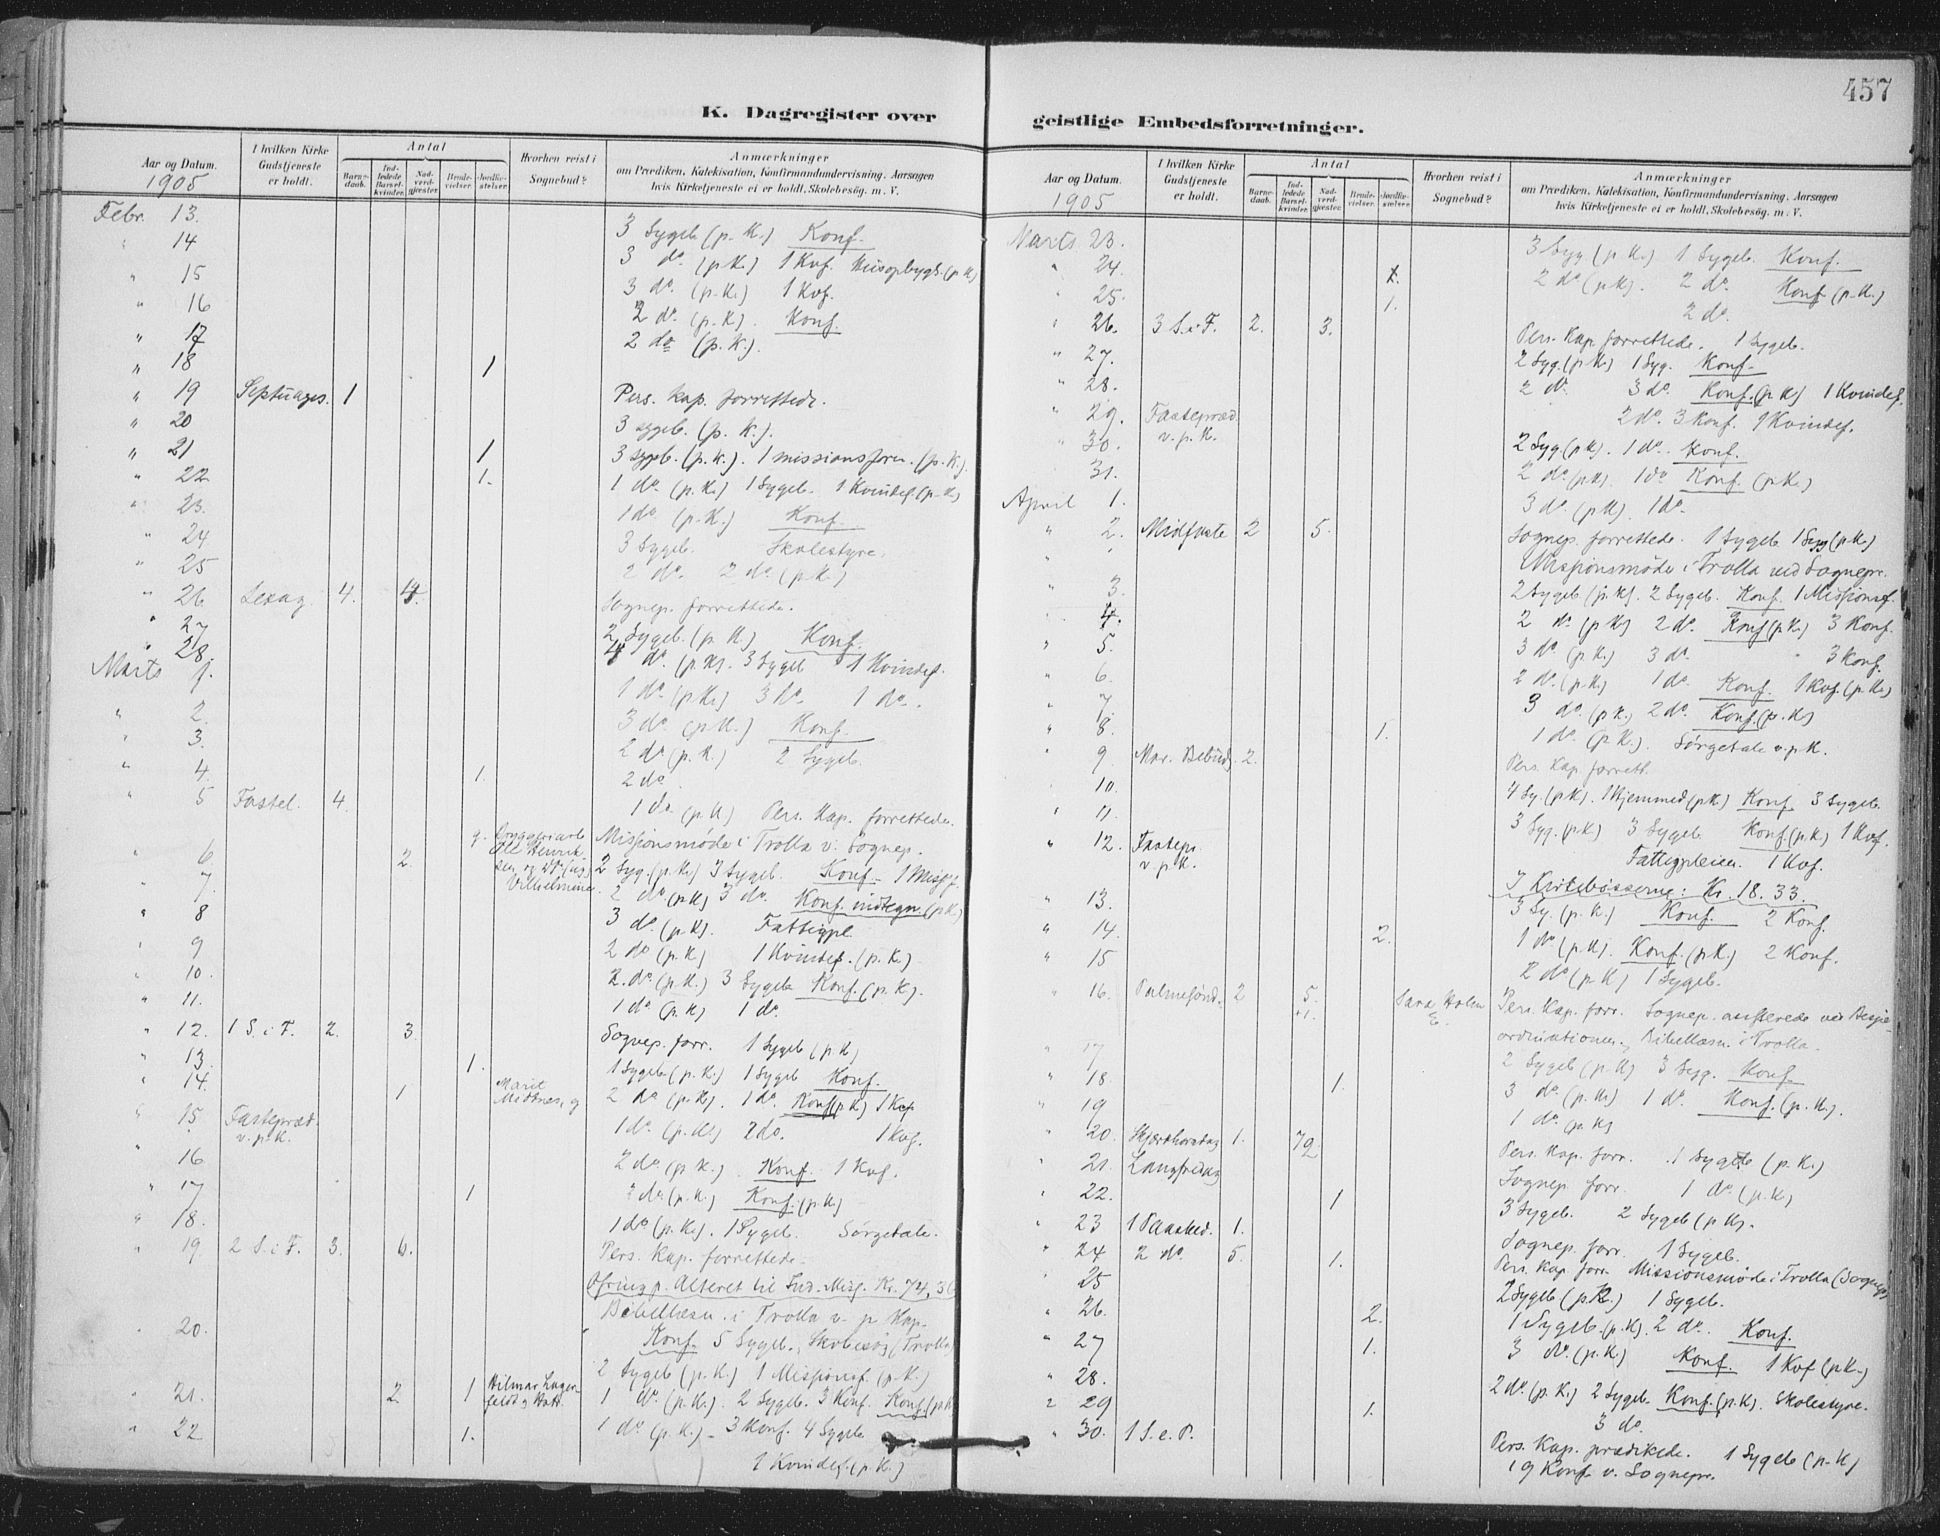 457
K. Dagregister over
geistlige Embedsforretninger.
Aar og Datum.
1905
I hvilken Kirke
Gudstjeneste
er holdt.
Antal
Barne-
daab.
Ind-
ledede
Barsel-
kvinder.
Nad-
verd-
gjester.
Brude-
vielser.
Jordfæ-
stelser.
Hvorhen reist i
Sognebud?
Anmærkninger
om Prædiken, Katekisation, Konfirmandundervisning, Aarsagen
hvis Kirketjeneste ei er holdt, Skolebesøg. m. V.
Febr. 13. 3 Sygeb (p. K.) Konf.
" 14 3 do. (p K.) 1 Kvf. Husopbygg. (p K)
" 15 3 do. (p. K.) 1 Kvf.
" 16 2 do. (p. K). Konf.
" 17 2 do (p. K.).
" 18 1
" 19 Septuages. 1 Pers. Kap. forrettede.
" 20 3 sygeb. (p. K.).
" 21 1 3 sygeb. (p. K.). 1 missionsforen. (p. K.).
" 22 1. 1 do. (p. K.) 1 Sygeb. 1 Kvindef. (p. K)
" 23. 1 do. (p. K.) Konf.
" 24 3 Sygeb. Skolestyre.
" 25 2 do. 2 do. (p K.)
" 26 Sexag. 4. 4. Sognep. forrettede.
" 27 2 Sygeb. (p. K) Konf.
" 28. 4 do. (p. K). 3 Sygeb 1 Kvindef.
Marts 1. 1 do. (p K.) 3 do. 1 do.
" 2. 3 do. (p. K.) Konf.
" 3. 2 do (p. K.) 2 Sygeb.
" 4. 1. 2 do.
" 5 Fastel. 4. 1 do. (p. K) Pers. Kap. forrettede.
Missionsmøde i Trolla v. Sognep.
" 6 2. 2 Syg. (p. K.) 3 Sygeb. Konf.
Vilhelmine.
" 7. 2 do (p K) 3 do. Konf. indtegn. (p K.)
" 8 3 do. (p. K). Fattigpl.
" 9 2 do (p. K) 1 Kvindef. (p. K.)
" 10. 2. do. (p. K.) 3 Sygeb Konf. (p. K.).
" 11. 1 do. (p. K) 1 do.
" 12. 1 S. i F. 2. 3. Sognep. forr. 1 Sygeb (p K)
" 13. 1. 1 Sygeb (p. K.) 1 Sygeb Konf.
" 14. 1 Marit 2 do (p. K.). 1 do. Konf (p K)
" 15 Fastepræd. 1 do. (p. K.) 2 do. 1 Kvf.
v. p. K.
" 16 2 do (p K.). Konf. 1 Kvf.
" 17 1 2 do. (p. K.) Konf. (p. K)
" 18. 1 do (p. K.). 1 Sygeb. Sørgetale.
" 19 2 S. i F. 3. 6. Pers. Kap. forrettede.
Ofring p. Alteret til Ind. Miss. Kr. 74,
Bibellæsn. i Trolla v. p Kap.
" 20. Konf. 5 Sygeb., Skolesøg (Trolla)
2 Sygeb (p. K.) 1 Missionsf. (p. K.)
" 21. 2. 1 Hilmar 1 do. (p. K.). 2 Sygeb. 3 Konf. Konf. (p K)
" 22 1. 1 do. (p. K.) 3 Konf. 4 Sygeb
1 Kvindef. (p. K.)
Aar og Datum.
1905
I hvilken Kirke
Gudstjeneste
er holdt.
Antal
Barne-
daab.
Ind-
ledede
Barsel-
kvinder.
Nad-
verd-
gjester.
Brude-
vielser.
Jordfæ-
stelser.
Hvorhen reist i
Sognebud?
Anmærkninger
om Prædiken, Katekisation, Konfirmandundervisning, Aarsagen
hvis Kirketjeneste ei er holdt, Skolebesøg. m. V.
Marts 23. 3 Syg (p K.) 1 Sygeb. Konf.
" 24. 2 do (p K). 2 do. Konf (p. K.)
" 25. 1. 2 do.
" 26. 3 S. i F. 2. 3. Pers. Kap forrettede. 1 Sygeb.
" 27. 2 Syg. (p K.) 1 Syg. Konf.
" 28. 2 do. 3 do. Konf. (p K) 1 Kvindef.
" 29. Fastepræd. 2 do. 3 Konf. 1 Kvindef.
v. p. K.
" 30. 2 Syg (p K). 1 do. Konf.
31. 2 do. (p K). 1 do Konf. (p K.)
April 1. 3 do. (p K). 1 do.
" 2. Midfaste 2 5. Sognep. forrettede. 1 Sygeb 1 Syg (p K.)
" Missionsmøde i Trolla ved Sognepr.
" 3. 2 Sygeb (p. K). 2 Sygeb. Konf. 1 Missionsf.
" 4. 2 do. (p K) 2 do. Konf (p K.) 3 Konf.
" 5. 3 do. (p. K.) 3 do. 3 Konf.
" 6. 2 do. (p K) 1 do. Konf. 1 Kvf. (p. K.)
" 7. 3 do. (p K.) 2 do. Konf. (p. K)
" 8. 1. 1 do. (p. K.). Sørgetale v. p K.
" 9 Mar. Bebud. 2. Pers. Kap. forrett.
10. 4 Sy. (p K). 1 Hjemmed (p K.) Konf. 3 Sygeb.
" 11. 3 Syg. (p K) 3 Sygeb Konf. (p K.) 1 Kvf.
" 12. Fastepr. Fattigpleien. 1 Kvf.
v p K.
I Kirkebøsserne: Kr. 18. 33.
" 13. 3 Sy. (p. K.) Konf. 2 Konf.
" 14. 2. 1 do (p. K). Konf. (p K.) 2 Konf.
" 15 2 do (p. K) 1 Sygeb.
" 16. Palmesønd. 2 5. Sara Holm Pers. Kap. forr. Sognep. assisterede ved
+1.
Bibellæsn. i Trolla.
" 17 2 Sygeb (p K) 3 Syg. Konf.
" 18. 1. 3 do. (p. K.) 1 do. Konf. (p. K.).
" 19 1 do. (p. K)
" 20. Skjærthorsdag 1. 72 Pers. Kap. forr. 1 Sygeb (p. K.)
" 21. Langfredag Sognep. forr. 1 do. (p. K)
" 22. 1 3 Sygeb. 2 Sygeb (p K).
" 23 1 Paasked. 1. Sognep. forr. 1 Sygeb.
" 24 2 do. 5. 1. Pers. Kap forr. Missionsmøde i Trolla (Sognep)
" 25 2 Sygeb (p. K.) 1 Sygeb.
" 26. 2. 1 Sygeb. (p. K). 2 do. Konf.
" 27 1. 3 do. (p. K.) Konf. 1 Kvf (p K.)
" 28. 2 do. (p. K.) 2 Sygeb Konf. (p. K). Skolestyre.
" 29 1. 3 do.
" 30. 1 S. e. P. Pers. Kap. prædikede. 1 Sygeb (p. K)
19 Konf v. Sognepr.